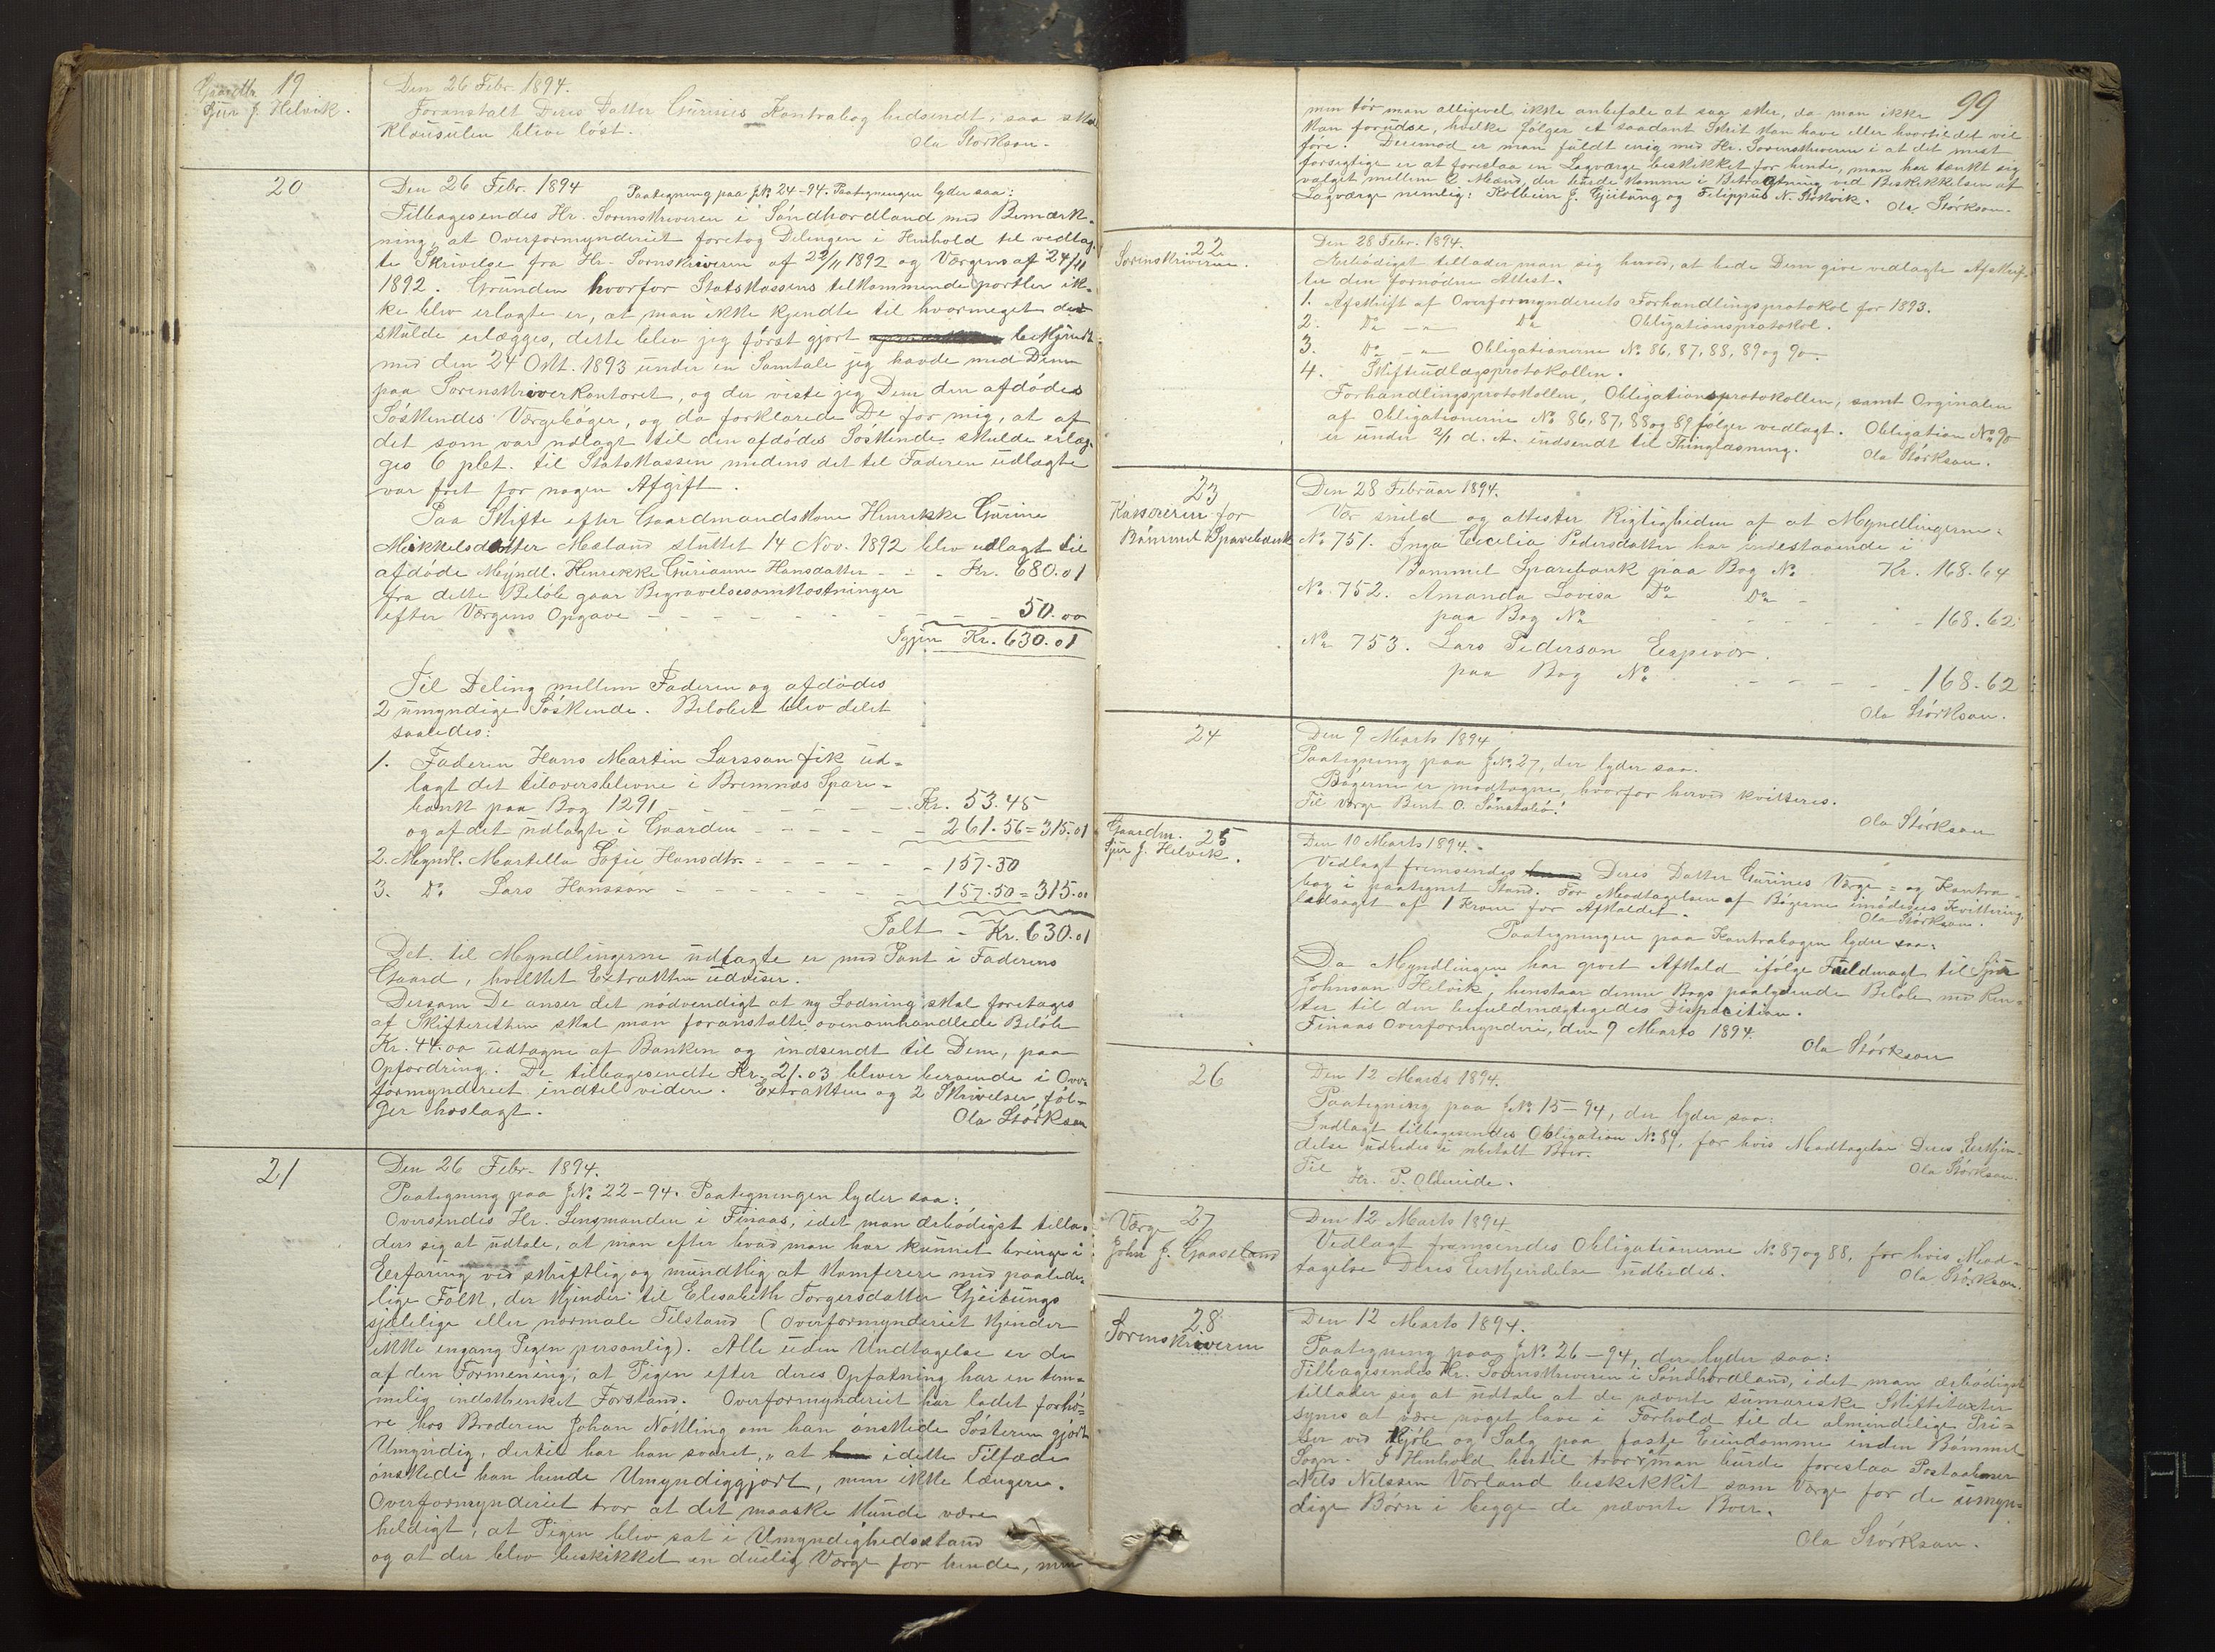 Gaardbr. 19
Sjur J. Helvik.
Den 26 Febr. 1894.
Foranstalt Deres Datter Gurines Kontrabog hidsendt, saa skal
Klausulen blive løst.
Ola Størkson.
20
Den 26 Febr. 1894 Paategning paa JN° 24-94. Paategningen lyder saa:
Tilbagesendes Hr. Sorenskriveren i Søndhordland med Bemærk-
ning, at Overformynderiet foretog Delingen i Henhold til vedlag-
te Skrivelse fra Hr. Sorenskriveren af 22/11 1892 og Værgens af 24/11
1892. Grunden hvorfor Statskassens tilkommende portler ik-
ke blev erlagte er, at man ikke kjendte til hvormeget der
skulde erlægges, dette blev jeg først gjort bekjendt
med den 24 Okt. 1893 under en Samtale jeg havde med Dem
paa Sorenskriverkontoret, og der viste jeg Dem den afdødes
Søskendes Værgebøger, og da forklarede De for mig, at af
det som var udlagt til den afdødes Søskende skulde erlæg-
ges 6 pCt. til Statskassen medens det til Faderen udlagte
var frit for nogen Afgift.
Paa Skifte efter Gaardmandskone Henrikke Gurine
Mikkelsdatter Mæland sluttet 14 Nov. 1892 blev udlagt til
afdøde Myndl. Henrikke Gurianne Hansdatter - - - Kr. 680.01
fra dette Beløb gaar Begravelsesomkostninger
efter Værgens Opgave - - - - - - - - 50.00
Igjen Kr. 630.01
Til Deling mellem Faderen og afdødes
2 umyndige Søskende. Beløbet blev delet
saaledes:
1. Faderen Hans Martin Larsson fik ud-
lagt det tiloversblevne i Bremnæs Spare-
bank paa Bog 1291 - - - - - - - Kr. 53.45
og af det udlagte i Gaarden - - - - - - 261.56 = 315.01
2. Myndl. Martella Sofie Hansdtr. - - - - - - 157.50
3. D° Lars Hansson - - - - - - - - 157.50 = 315.01
Ialt - Kr. 630.01
Det til Myndlingerne udlagte er med Pant i Faderens
Gaard, hvilket Extrakten udviser.
Dersom De anser det nødvendigt at ny Lodning skal foretages
af Skifteretten skal man foranstalte ovenomhandlede Beløb
Kr. 44.00 udtagne af Banken og indsendt til Dem, paa
Opfordring. De tilbagesendte Kr. 21.03 bliver beroende i Over-
formynderiet indtil videre. Extrakten og 2 Skrivelser føl-
ger hoslagt.
Ola Størkson
21
Den 26 Febr. 1894.
Paategning paa JN° 22-94. Paategningen lyder saa:
Oversendes Hr. Lensmanden i Finaas, idet man ærbødigst tilla-
der sig at udtale, at man efter hvad man har kunnet bringe i
Erfaring ved skriftlig og mundtlig at komferere med paalide-
lige Folk, der kjender til Elisabeth Torgersdatter Gjeitungs
sjælelige eller normale Tilstand (Overformynderiet kjender
ikke engang Pigen personlig). Alle uden Undtagelse er de
af den Formening, at Pigen efter deres Opfatning har en tem-
melig indskrænket Forstand. Overformynderiet har ladet forhø-
re hos Broderen Johan Nøkling om han ønskede Søsteren gjort
Umyndig, dertil har han svaret, „at i dette Tilfæde
ønskede han hende Umyndiggjort, men ikke længere.
Overformynderiet tror at det maaske kunde være
heldigt, at Pigen blev sat i Umyndighedsstand
og at der blev beskikket en duelig Værge for hende, men
99
men tør man alligevel ikke anbefale at saa sker, da man ikke
kan forudse, hvilke Følger et saadant Skrit kan have eller hvortil det vil
føre. Derimod er man fuldt enig med Hr. Sorenskriveren i at det mest
forsigtige er at foreslaa en Lagværge beskikket for hende, man har tænkt sig
valget mellem 2 Mænd, der burde komme i Betragtning ved Beskikkelsen af
Lagværge nemlig: Kolbein J. Gjeitung og Filippus N. Stokvik.
Ola Størkson.
22
Sorenskriveren.
Den 28 Febr. 1894.
Ærbødigst tillader man sig herved, at bede Dem give vedlagte Afskrif-
ter den fornødne Attest.
1. Afskrift af Overformynderiets Forhandlingsprotokol for 1893.
2. D° -„- D° Obligationsprotokol.
3. D° -„- Obligationerne N° 86, 87, 88, 89 og 90.
4. Skifteudlægsprotokollen.
Forhandlingsprotokollen, Obligationsprotokollen, samt Orginalen
af Obligationerne N° 86, 87, 88 og 89 følger vedlagt. Obligation N° 90
er under 2/1 d. A. indsendt til Thinglæsning.
Ola Størkson.
23
Kassereren for
Bømmel Sparebank
Den 28 Februar 1894.
Vær snild og attester Rigtigheden af at Myndlingerne:
N° 751. Inga Cecilia Pedersdatter har indestaaende i
Bømmel Sparebank paa Bog N° Kr. 168.64
N° 752. Amanda Lovisa D° D° -
paa Bog N° - - - - - - 168.62
N° 753. Lars Pederson Espevær.
paa Bog N° - - - - - 168.62
Ola Størkson.
24
Den 9 Marts 1894
Paategning paa JN° 27, der lyder saa.
Bøgerne er modtagne, hvorfor herved kvitteres.
Til Værge Bent O. Sønstabø.
Ola Størkson
Gaardm. 25
Sjur J. Helvik.
Den 10 Marts 1894.
Vedlagt fremsendes Deres Datter Gurines Værge- og Kontra-
bog i paategnet Stand. For Modtagelsen af Bøgerne imødesees Kvittering
ledsaget af 1 Krone for Afkaldet.
Ola Størkson.
Paategningen paa Kontrabogen lyder saa:
Da Myndlingen har givet Afkald ifølge Fuldmagt til Sjur
Johnson Helvik, henstaar denne Bogs paalydende Beløb med Ren-
ter til den befuldmægtigedes Disposition.
Finaas Overformynderi, den 9 Marts 1894.
Ola Størkson
26
Den 12 Marts 1894.
Paategning paa JN° 15-94, der lyder saa:
Indlagt tilbagesendes Obligation N° 89, for hvis Modtagelse Deres Erkjen-
delse udbedes i ubetalt Brev.
Til
Hr. P. Oldereide.
Ola Størkson.
27
Værge
John J. Gaaseland
Den 12 Marts 1894.
Vedlagt fremsendes Obligationerne N° 87 og 88, for hvis Mod-
tagelse Deres Erkjendelse udbedes.
Ola Størkson.
28
Sorenskriveren
Den 12 Marts 1894.
Paategning paa JN° 26-94, der lyder saa:
Tilbagesendes Hr. Sorenskriveren i Søndhordland, idet man ærbødigst
tillader sig at udtale at de nævnte sumariske Skiftetaxter
synes at være noget lave i Forhold til de almindelige Pri-
ser ved Kjøb og Salg paa faste Eiendomme inden Bømmel
Sogn. I Henhold hertil tror man burde foreslaa Postaabner
Nils Nilssen Vorland beskikket som Værge for de umyn-
dige Børn i begge de nævnte Boer.
Ola Størkson.